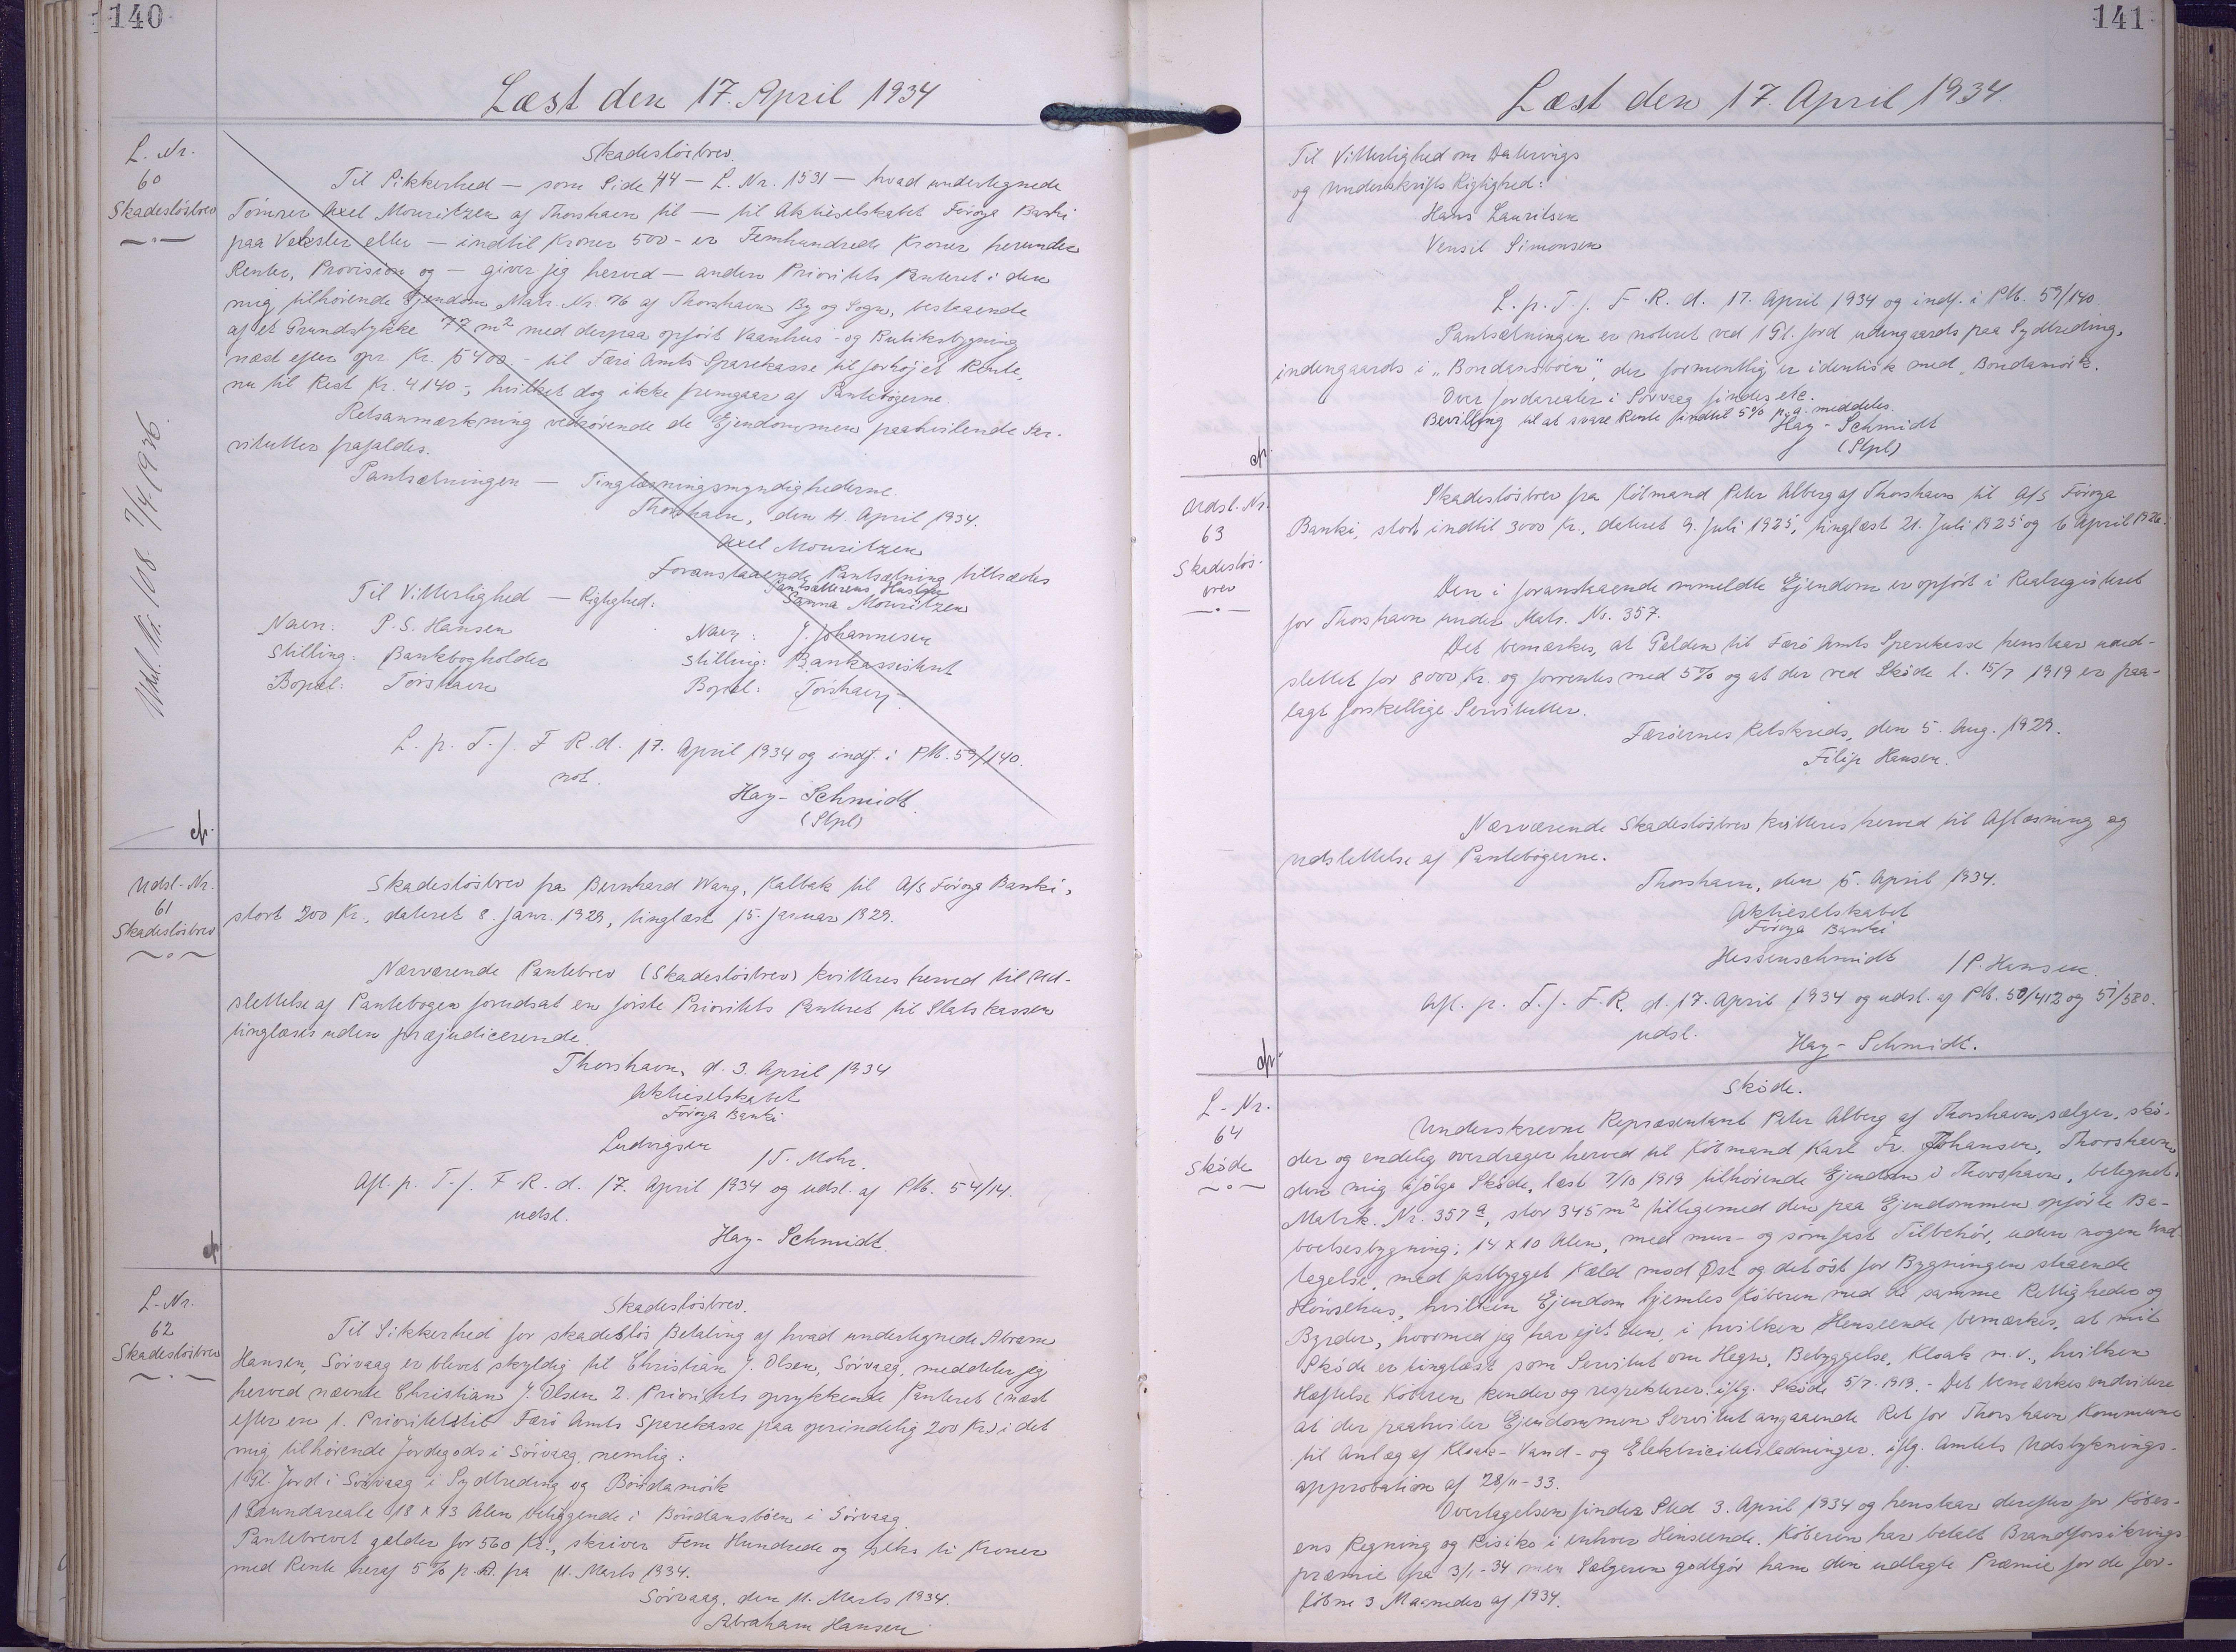 140
Læst den 17. April 1934
L. Nr.
60
Skadesløsbrev
Udsl. Nr. 108 7/4-1936.
Skadesløsbrev.
Til Sikkerhed — som Side 44 — L. Nr. 1531 — hvad undertegnede
Tømrer Axel Mouritzen af Thorshavn til — til Aktieselskabet Föroya Banki
paa Veksler eller — indtil Kroner 500 - er Femhundrede Kroner herunder
Renter, Provision og — giver jeg herved — anden Prioritets Panteret i den
mig tilhørende Ejendom Matr. Nr. 76 af Thorshavn By og Sogn, bestaaende
af et Grundstykke 77 m² med derpaa opført Vaanhus- og Butiksbygning
næst efter opr. Kr. 5400 - til Færø Amts Sparekasse til forhøjet Rente,
nu til Rest Kr. 4140-, hvilket dog ikke fremgaar af Pantebøgerne.
Retsanmærkning vedrørende de Ejendommen paahvilende Ser-
vitutter frafaldes.
Pantsætningen — Tinglæsningsmyndighederne.
Thorshavn, den 4. April 1934.
Axel Mouritzen
Foranstaaende Pantsætning tiltrædes
Pantsætterens Hustru
Sanna Mouritzen
Til Vitterlighed — Rigtighed:
Navn: P.S. Hansen Navn: J. Johannesen
Stilling: Bankbogholder Stilling: Bankassistent
Bopæl: Tórshavn Bopæl: Tórshavn
L. p. T. f. F. R. d. 17. April 1934 og indf. i Ptb. 59/140.
not.
Hay-Schmidt
(Stpl)
cf.
Udsl. Nr.
61
Skadesløsbrev
Skadesløsbrev fra Bernhard Wang, Kalbak til A/S Föroya Banki,
stort 200 Kr., dateret 8. Janr. 1929, tinglæst 15. Januar 1929.
Nærværende Pantebrev (Skadesløsbrev) kvitteres herved til Ud-
slettelse af Pantebogen forudsat en første Prioritets Panteret til Statskassen
tinglæses uden præjudicerende.
Thorshavn, d. 3. April 1934
Aktieselskabet
Föroya Banki
Ludvigsen
/T. Mohr.
Afl. p. T. f. F. R. d. 17. April 1934 og udsl. af Ptb. 54/14.
udsl.
Hay-Schmidt.
cf.
L. Nr.
62
Skadesløsbrev
Skadesløsbrev.
Til Sikkerhed for skadesløs Betaling af hvad undertegnede Abram
Hansen, Sørvaag er blevet skyldig til Christian J. Olsen, Sørvaag, meddeler jeg
herved nævnte Christian J. Olsen 2. Prioritets oprykkende Panteret (næst
efter en 1. Prioritet til Færø Amts Sparekasse paa oprindelig 200 Kr.) i det
mig tilhørende Jordegods i Sørvaag, nemlig:
1 Gl. Jord i Sørvaag i Sydtreding og Bóndamørk
1 Grundareale 18 x 13 Alen beliggende i Bóndansbøen i Sørvaag.
Pantebrevet gælder for 560 Kr., skriver Fem Hundrede og seks ti Kroner
med Rente heraf 5 % p. A. fra 11. Marts 1934.
Sørvaag, den 11. Marts 1934.
Abraham Hansen
141
Læst den 17. April 1934.
Til Vitterlighed om Daterings
og Underskrifts Rigtighed:
Hans Lauritsen
Vensil Simonsen
L. p. T. f. F. R. d. 17. April 1934 og indf. i Ptb. 59/140.
Pantsætningen er noteret ved 1 Gl. Jord udengaards paa Sydtreding,
indengaards i „Bondansbøen", der formentlig er identisk med „Bondamørk.
Over Jordarealer i Sørvaag findes etc.
Bevilling til at svare Rente indtil 5% p. a. meddeles.
Hay-Schmidt
(Stpl)
cf.
Udsl. Nr.
63
Skadesløs-
brev
Skadesløsbrev fra Købmand Peter Alberg af Thorshavn til A/S Föroya
Banki, stort indtil 3000 Kr., dateret 9. Juli 1925, tinglæst 21. Juli 1925 og 6 April 1926.
Den i foranstaaende ommeldte Ejendom er opført i Realregisteret
for Thorshavn under Matr. Nr. 357.
Det bemærkes, at Gælden til Færø Amts Sparekasse henstaar uud-
slettet for 8000 Kr. og forrentes med 5% og at der ved Skøde l. 15/7 1919 er paa-
lagt forskellige Servitutter.
Færøernes Retskreds, den 5. Aug. 1929.
Filip Hansen.
Nærværende Skadesløsbrev kvitteres herved til Aflæsning og
Udslettelse af Pantebøgerne.
Thorshavn, den 5. April 1934.
Aktieselskabet
Föroya Banki
Hessenschmidt /P. Hansen.
Afl. p. T. f. F. R. d. 17. April 1934 og udsl. af Ptb. 50/412 og 51/580.
udsl.
Hay-Schmidt.
cf.
L. Nr.
64
Skøde
Skøde.
Underskrevne Repræsentant Peter Alberg af Thorshavn, sælger, skø-
der og endelig overdrager herved til Købmand Karl Fr. Johansen, Thorshavn
den mig ifølge Skøde, læst 7/10 1919 tilhørende Ejendom i Thorshavn, betegnet:
Matrk. Nr. 357 a, stor 345 m² tilligemed den paa Ejendommen opførte Be-
boelsesbygning; 14 x 10 Alen, med mur- og sømfast Tilbehør, uden nogen Und-
tagelse, med fastbygget Kæld mod Øst og det øst for Bygningen staaende
Hönsehus, hvilken Ejendom hjemles Køberen med de samme Rettigheder og
Byrder, hvormed jeg har ejet den, i hvilken Henseende bemærkes, at mit
Skøde er tinglæst som Servitut om Hegn, Bebyggelse, Kloak m.v., hvilken
Hæftelse Køberen kender og respekterer. iflg. Skøde 5/7. 1919. - Det bemærkes endvidere
at der paahviler Ejendommen Servitut angaaende Ret for Thorshavn Kommune
til Anlæg af Kloak- Vand- og Elektricitetsledninger. iflg. Amtets Udstyknings-
approbation af 28/11-33.
Overtagelsen finder Sted 3. April 1934 og henstaar derefter for Køber-
ens Regning og Risiko i enhver Henseende. Køberen har betalt Brandforsikrings
præmie fra 3/1-34 men Sælgeren godtgør ham den udlagte Præmie for de for-
løbne 3 Maaneder af 1934.